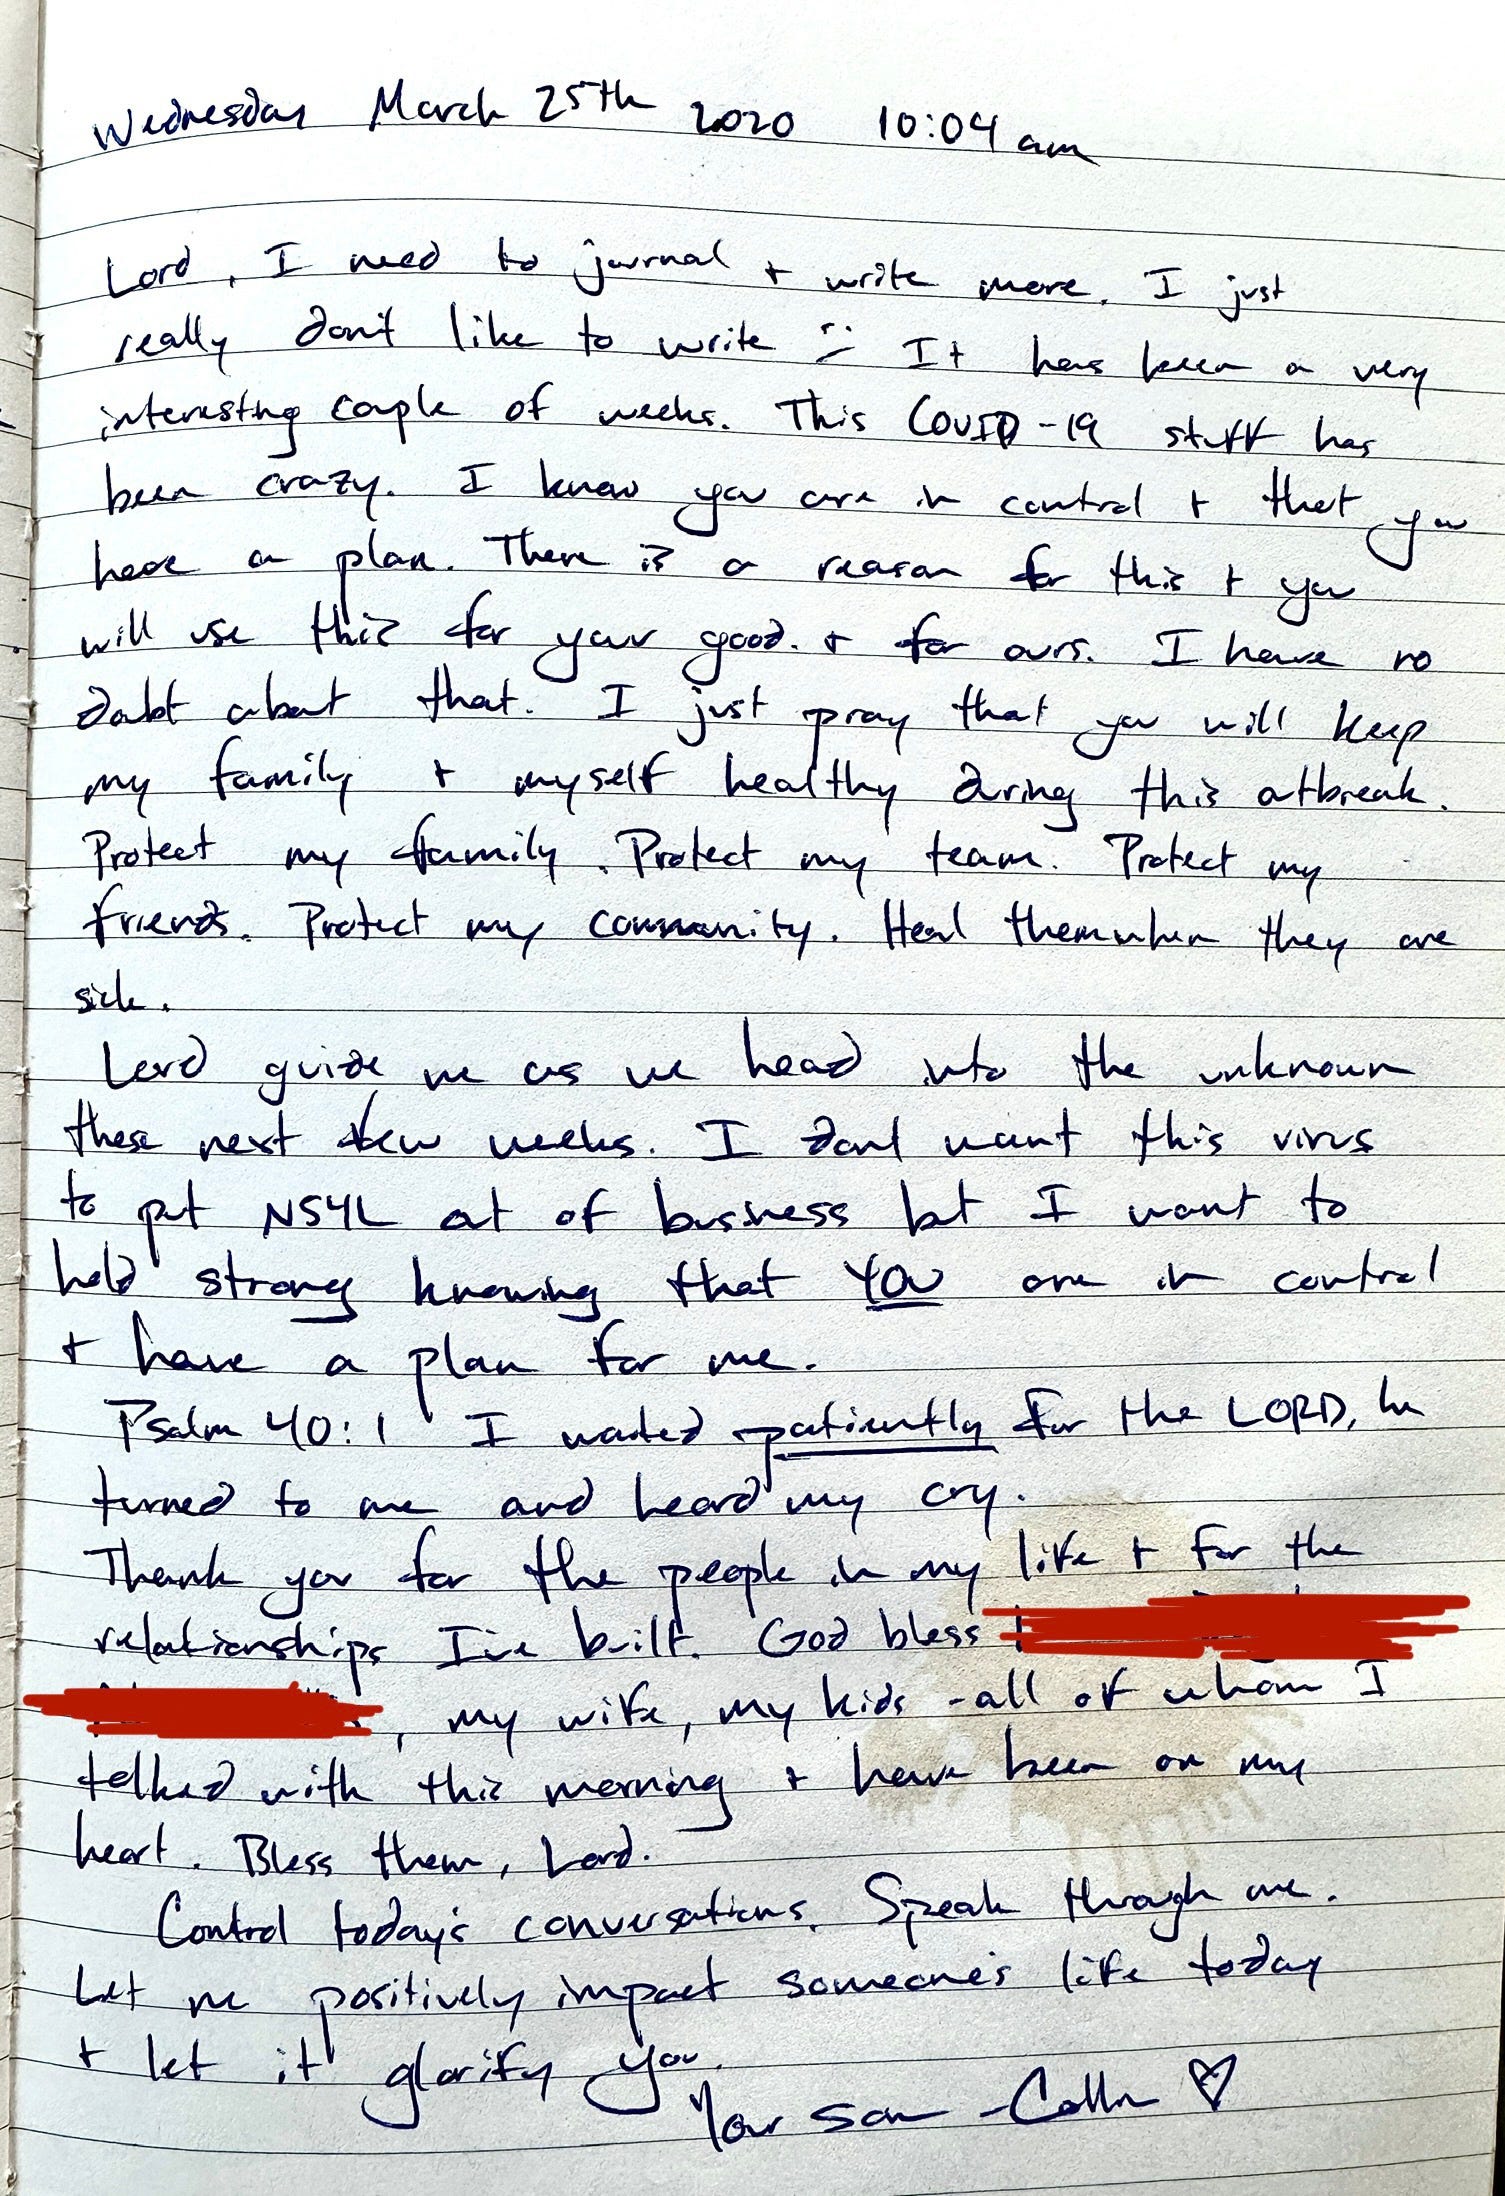 Wednesday March 25th 2020 10:04 am
Lord, I need to journal + write more. I just
really don't like to write :) It has been a very
interesting couple of weeks. This COVID-19 stuff has
been crazy. I know you are in control + that you
have a plan. There is a reason for this + you
will use this for your good. + for ours. I have no
doubt about that. I just pray that you will keep
my family + myself healthy during this outbreak.
Protect my family. Protect my team. Protect my
friends. Protect my community. Heal them when they are
sick.
Lord guide me as we head into the unknown
these next few weeks. I don't want this virus
to put NS4L out of business but I want to
hold strong knowing that YOU are in control
+ have a plan for me.
Psalm 40:1 I waited patiently for the LORD, he
turned to me and heard my cry.
Thank you for the people in my life + for the
relationships I've built. God bless
, my wife, my kids - all of whom I
talked with this morning + have been on my
heart. Bless them, Lord.
Control today's conversations. Speak through me.
Let me positively impact someone's life today
+ let it glorify you.
Your son - Collin ♡